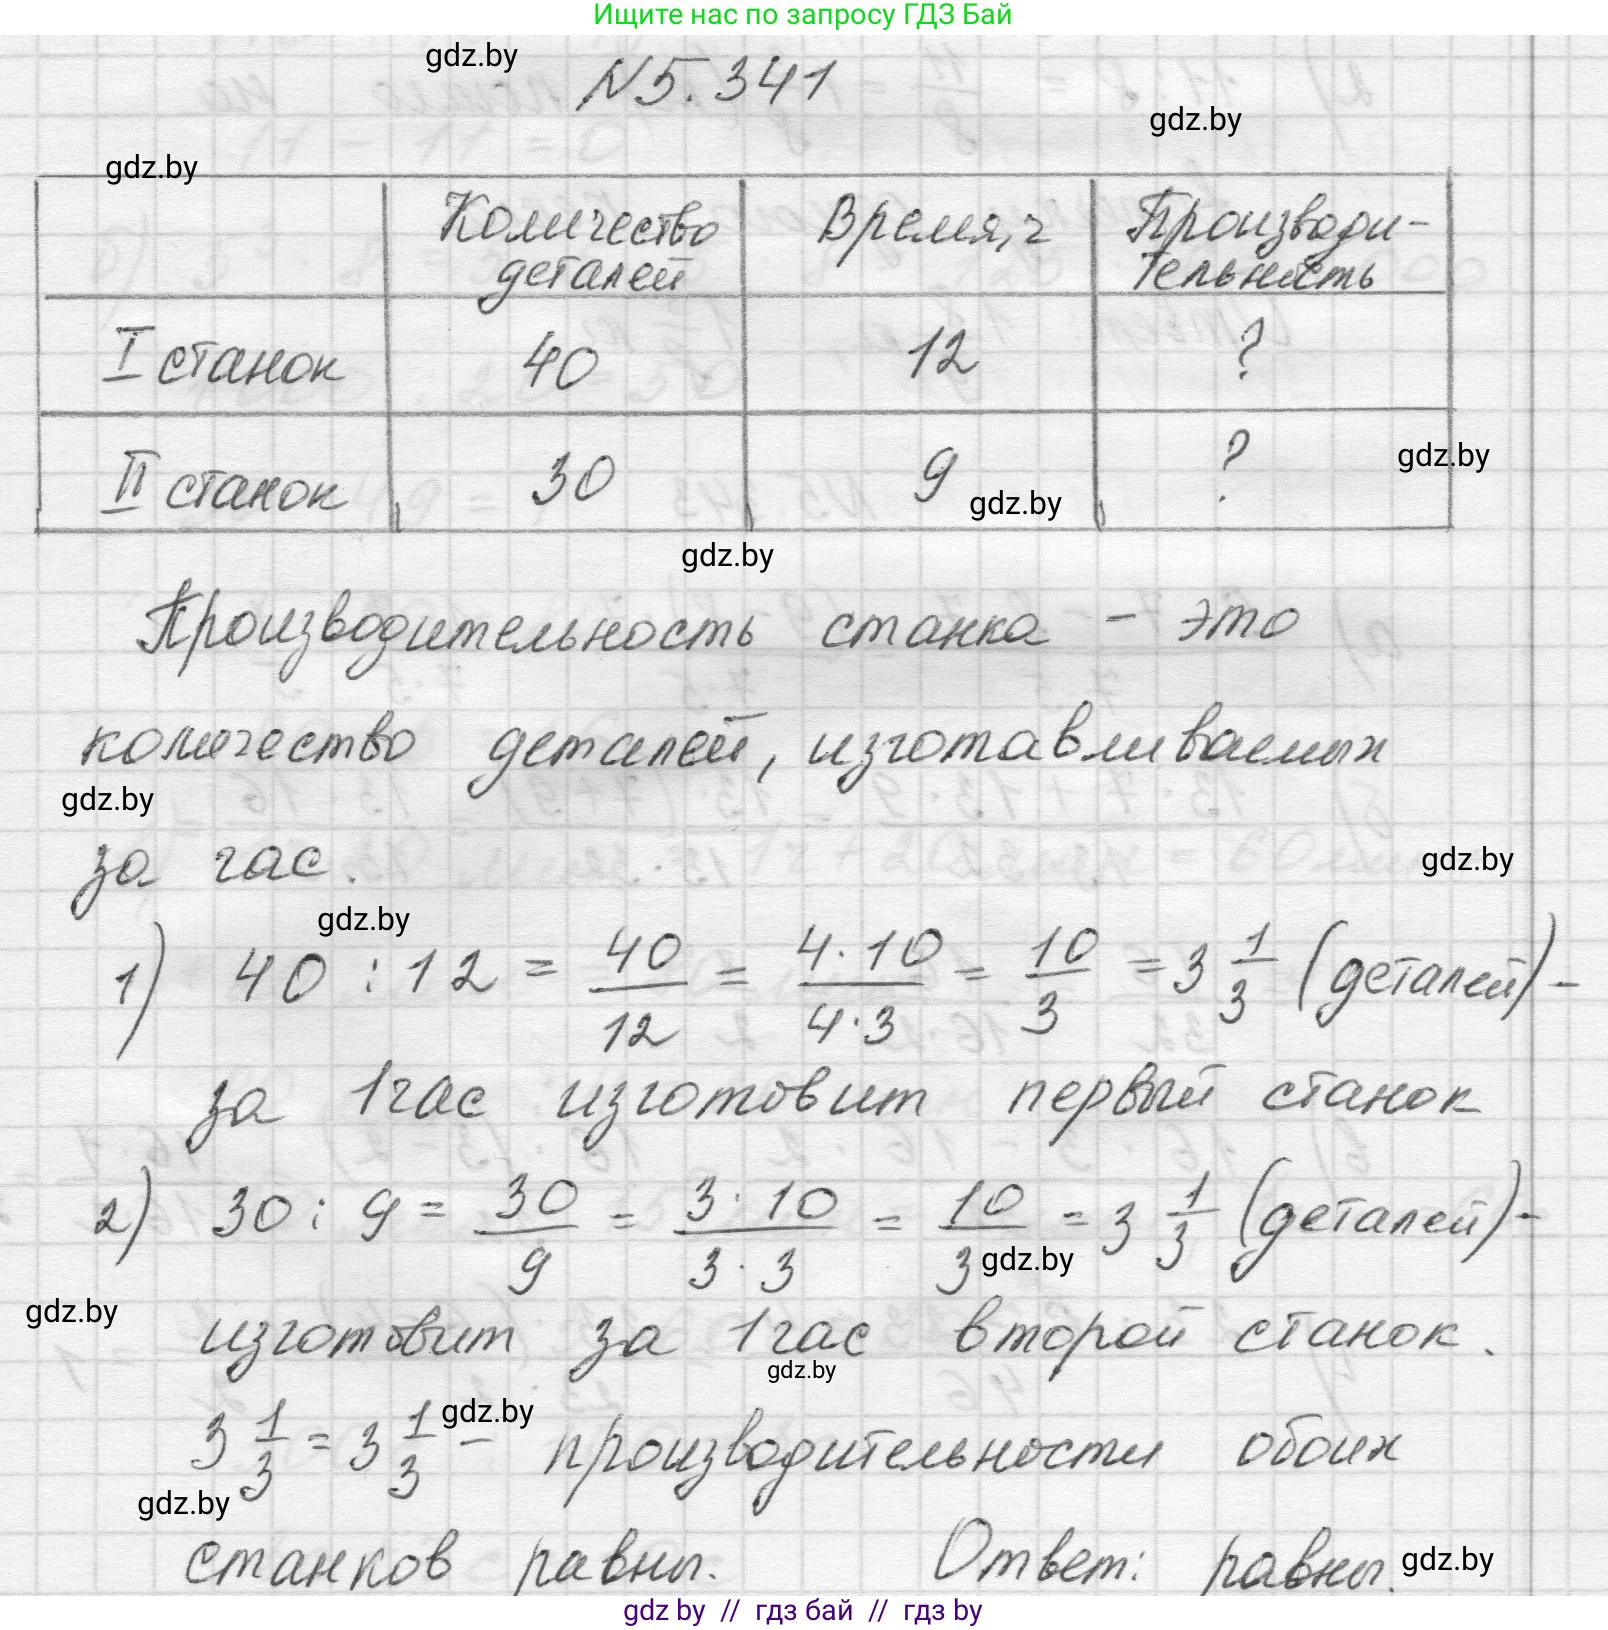 Ищите нас по запросу ГДЗ Бай
gdz.by
N5.341
gdz.by
gdz.by
Количество деталей Время, ч Производи-тельность
I станок 40 12 ?
II станок 30 9 ?
gdz.by
gdz.by
gdz.by
Производительность станка - это
количество деталей, изготавливаемых
gdz.by
за час.
gdz.by
gdz.by
1) 40 : 12 = 40/12 = 4·10/4·3 = 10/3 = 3 1/3 (деталей) -
за 1 час изготовит первый станок
2) 30 : 9 = 30/9 = 3·10/3·3 = 10/3 = 3 1/3 (деталей) -
gdz.by
gdz.by
изготовит за 1 час второй станок.
gdz.by
3 1/3 = 3 1/3 - производительности обоих
gdz.by
gdz.by
станков равны. Ответ: равны.
gdz.by
gdz by // гдз бай // гдз by